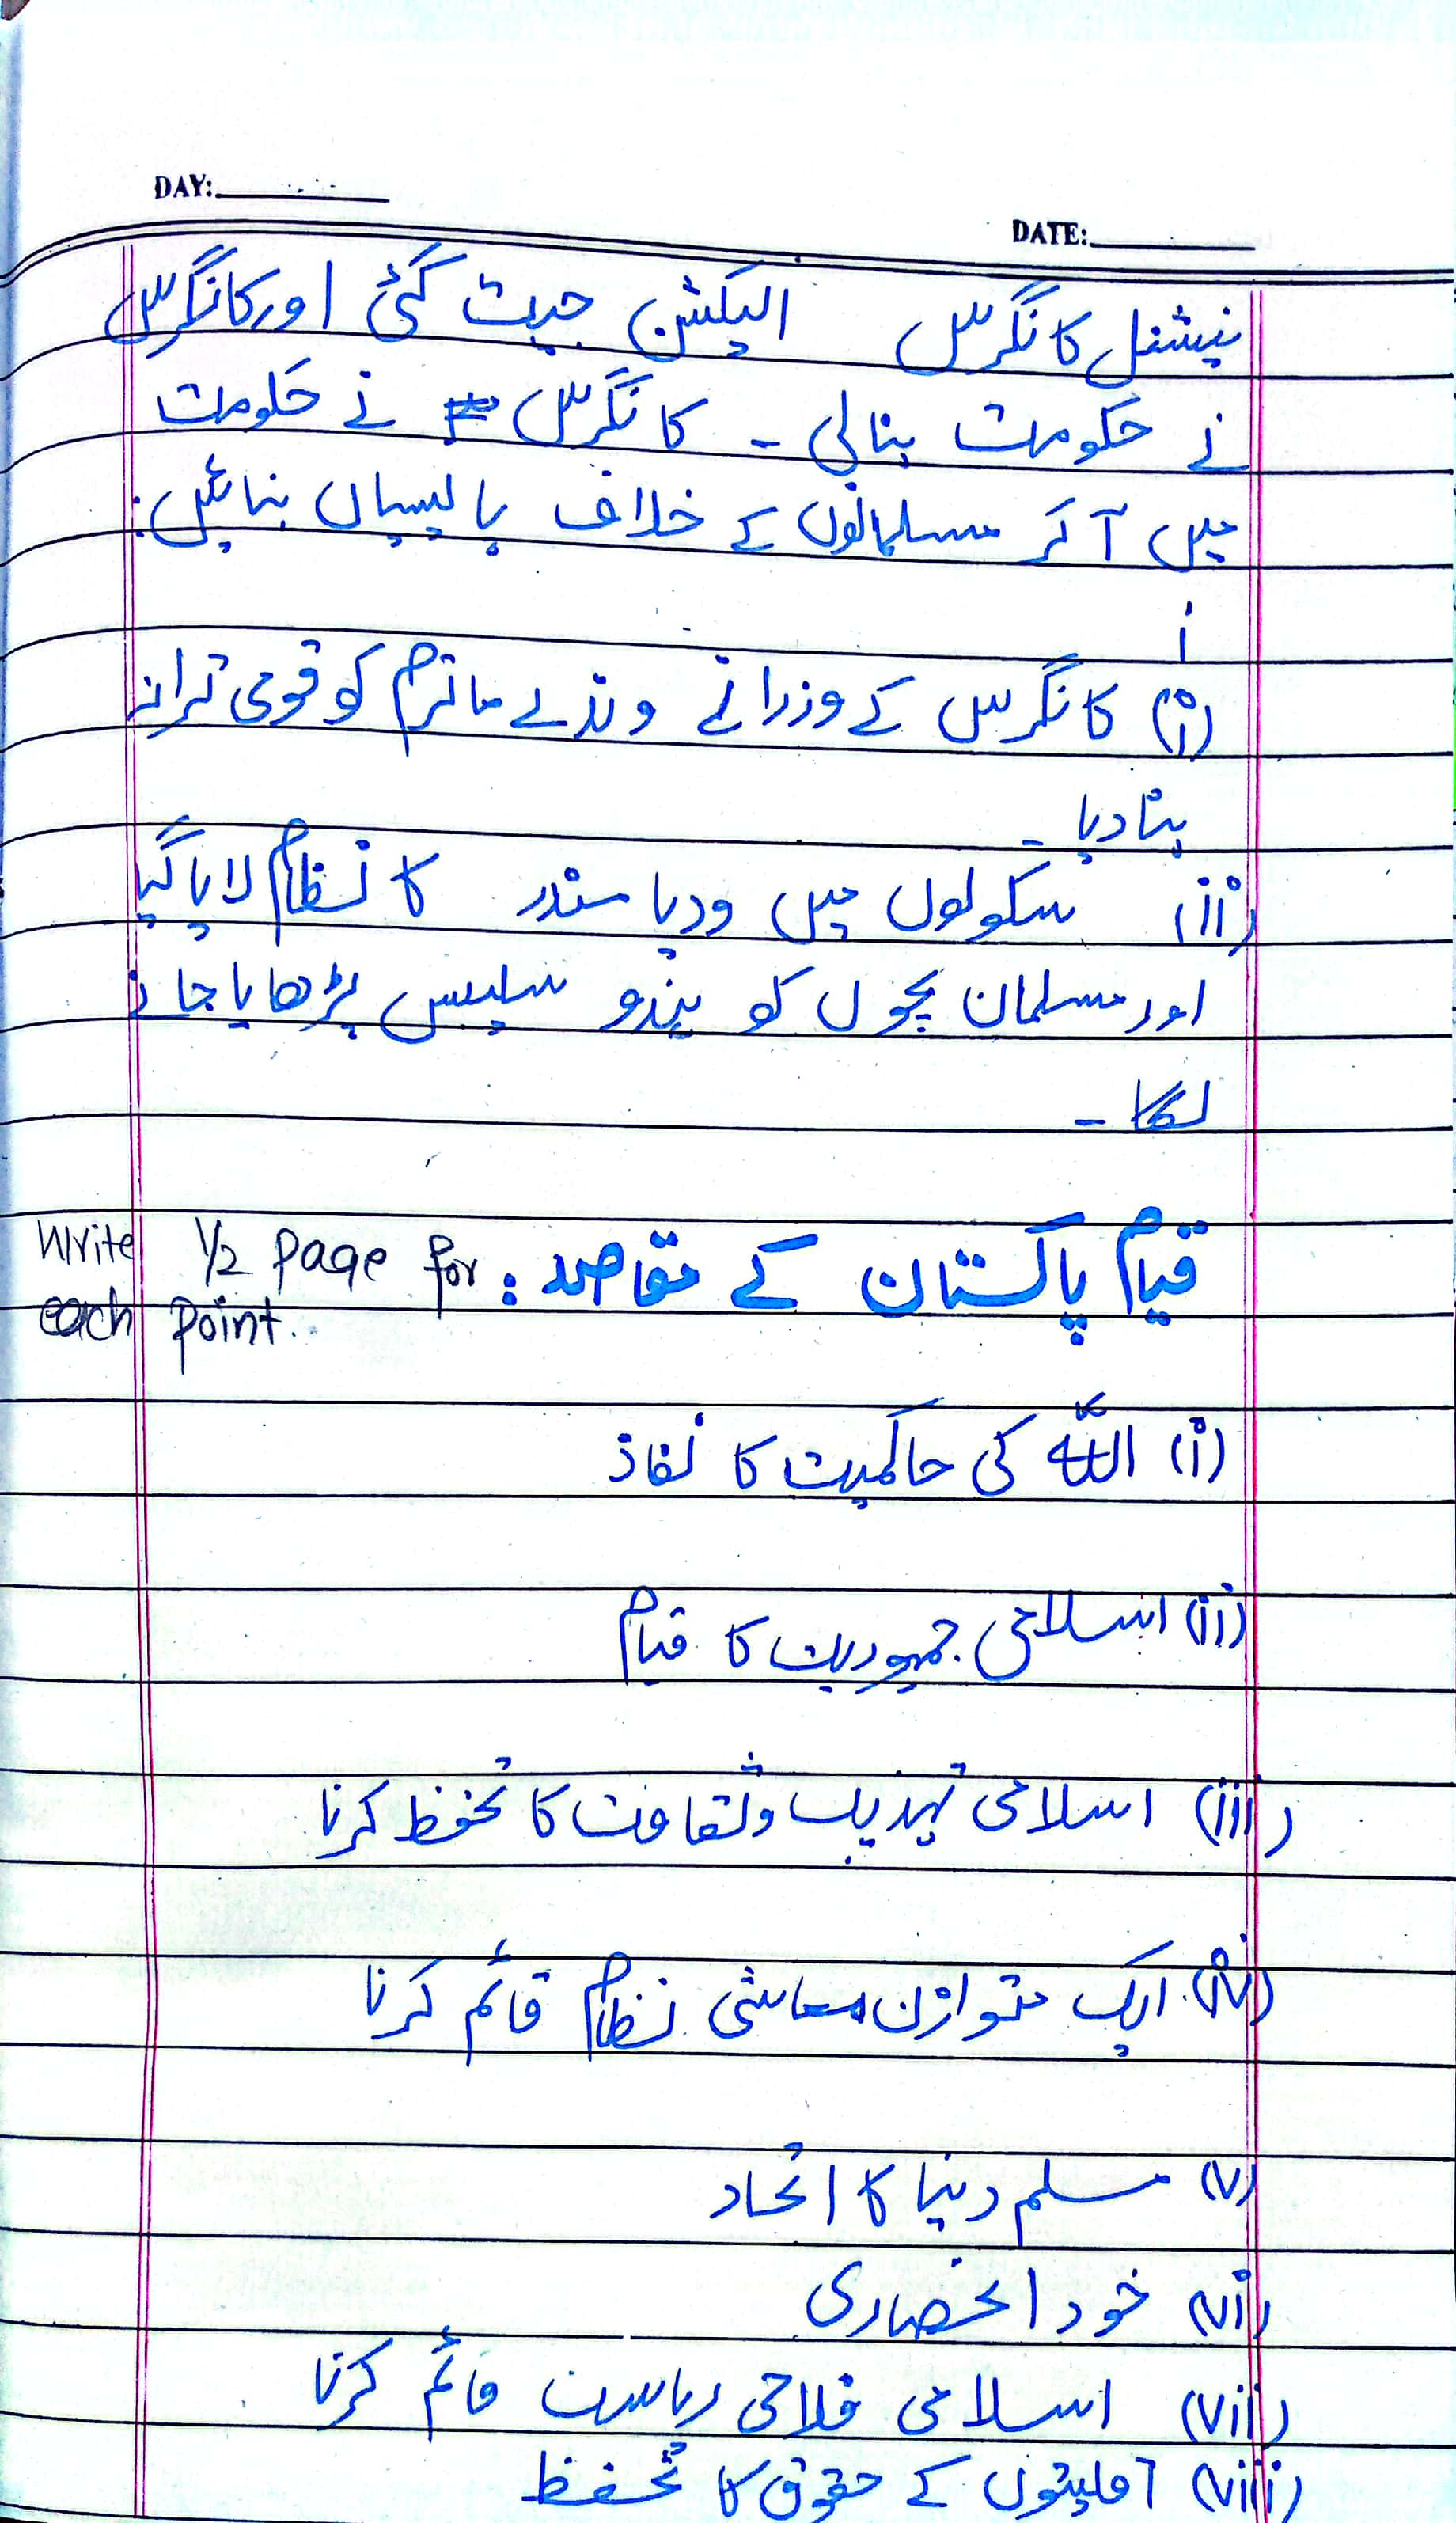 DAY:
DATE:
نیشنل کانگرس الیکشن جیت گئی اور کانگرس
نے حکومت بنالی ۔ کانگرس نے حکومت
میں آ کر مسلمانوں کے خلاف پالیسیاں بنائیں:
i
(i) کانگرس کے وزرا نے وندے ماترم کو قومی ترانہ
بنا دیا ۔
(ii) سکولوں میں ودیا مندر کا نظام لایا گیا
اور مسلمان بچوں کو ہندو سلیبس پڑھایا جانے
لگا ۔
قیام پاکستان کے مقاصد :
Write 1/2 page for
each point.
(i) اللہ کی حاکمیت کا نفاذ
(ii) اسلامی جمہوریت کا قیام
(iii) اسلامی تہذیب و ثقافت کا تحفظ کرنا
(iv) ایک متوازن معاشی نظام قائم کرنا
(v) مسلم دنیا کا اتحاد
(vi) خود انحصاری
(vii) اسلامی فلاحی ریاست قائم کرنا
(viii) اقلیتوں کے حقوق کا تحفظ